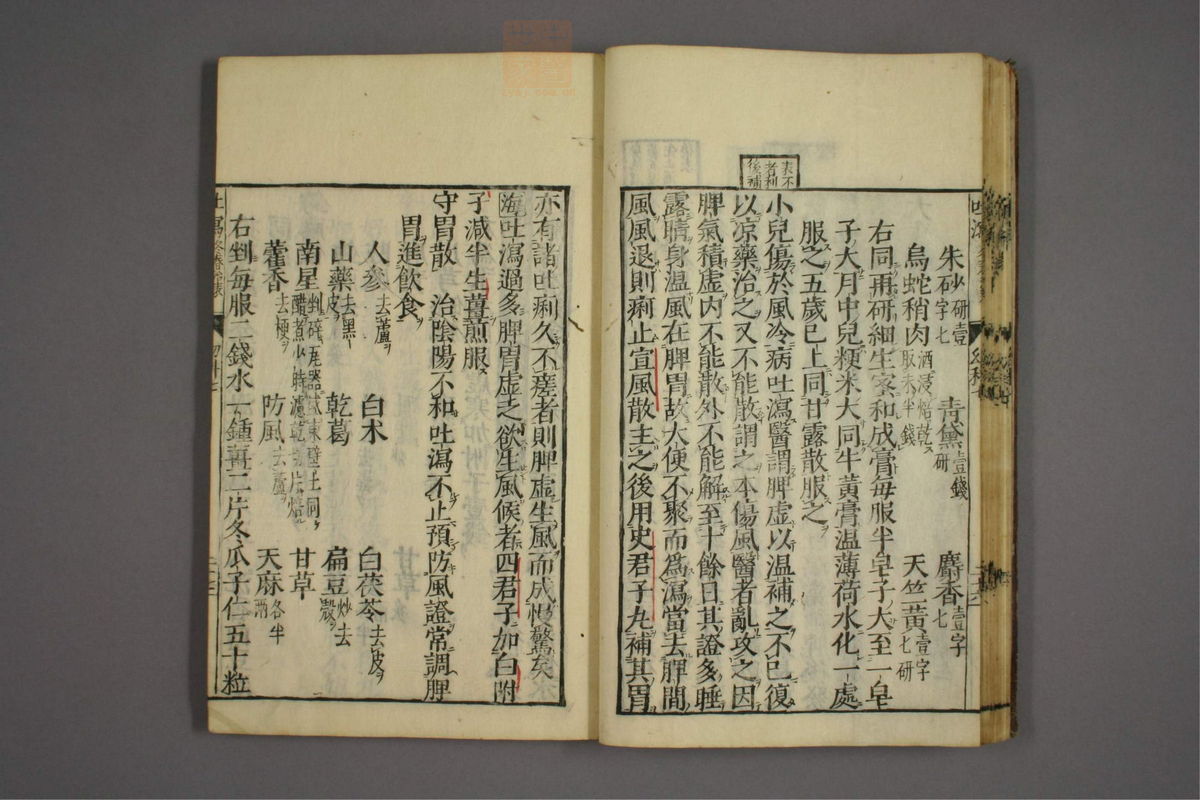 表不
者利
後補
朱砂研壹字七 青黛壹錢研 麝香壹字七
烏蛇稍肉酒浸焙乾取末半錢 天竺黄壹字七研
右同再研細生宻和成膏每服半皂子大至一皂
子大月中兒粳米大同牛黄膏温薄荷水化一處
服之五歲已上同甘露散服之
小兒傷於風冷病吐瀉醫謂脾虚以温補之不已復
以凉藥治之又不能散謂之本傷風醫者亂攻之因
脾氣積虚内不能散外不能解至十餘日其證多睡
露睛身温風在脾胃故大便不聚而爲瀉當去脾間
風風退則痢止宣風散主之後用史君子丸補其胃
亦有諸吐痢久不瘥者則脾虚生風而成慢驚矣
吐瀉過多脾胃虚乏欲生風候者四君子加白附
子減半生薑煎服
守胃散 治陰陽不和吐瀉不止預防風證常調脾
胃進飲食
人參去蘆 白术 白茯苓去皮
山藥去黑皮 乾葛 扁豆炒去殼
南星 甘草
藿香去梗 防風去蘆 天麻各半兩
右剉每服二錢水一鍾薑二片冬瓜子仁五十粒